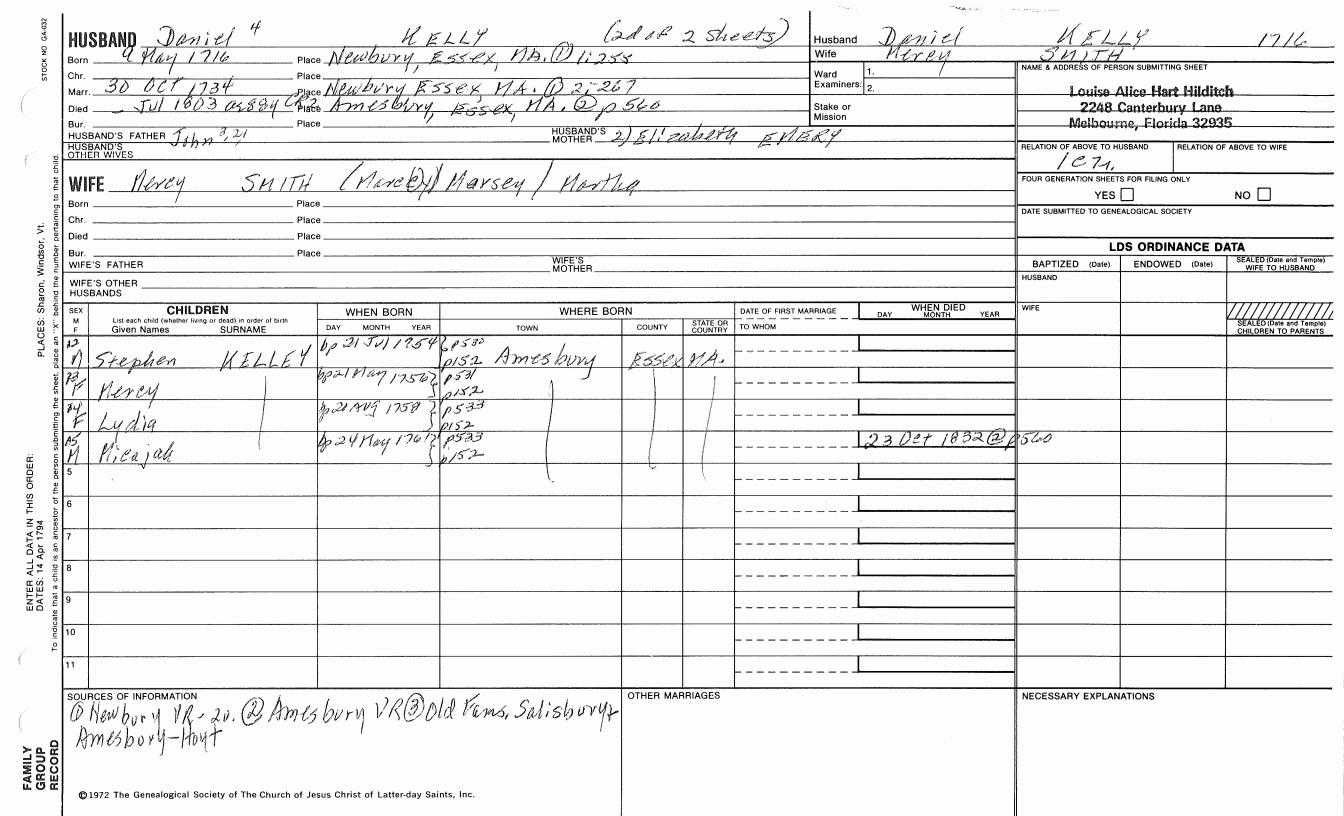 STOCK NO GA-032
HUSBAND Daniel 4 KELLY (2d of 2 Sheets)
Born 9 May 1716 Place Newbury, Essex, MA. ① 1:255
Chr. Place
Marr. 30 OCT 1734 Place Newbury Essex MA. ① 2:267
Died Jul 1803 as 89y CR2 Place Amesbury, Essex, MA. ② p560
Bur. Place
HUSBAND'S FATHER John 3,21 HUSBAND'S MOTHER 2) Elizabeth EMERY
HUSBAND'S OTHER WIVES
Husband Daniel KELLY 1716
Wife Mercy SMITH
Ward Examiners: 1. 2.
Stake or Mission
NAME & ADDRESS OF PERSON SUBMITTING SHEET
Louise Alice Hart Hilditch
2248 Canterbury Lane
Melbourne, Florida 32935
RELATION OF ABOVE TO HUSBAND RELATION OF ABOVE TO WIFE
1C7r.
FOUR GENERATION SHEETS FOR FILING ONLY
YES NO
DATE SUBMITTED TO GENEALOGICAL SOCIETY
WIFE Mercy SMITH (Marc(e)y) Marsey / Martha
Born Place
Chr. Place
Died Place
Bur. Place
WIFE'S FATHER WIFE'S MOTHER
WIFE'S OTHER HUSBANDS
LDS ORDINANCE DATA
BAPTIZED (Date) ENDOWED (Date) SEALED (Date and Temple) WIFE TO HUSBAND
HUSBAND
WIFE
SEALED (Date and Temple) CHILDREN TO PARENTS
SEX M F CHILDREN WHEN BORN WHERE BORN DATE OF FIRST MARRIAGE WHEN DIED
List each child (whether living or dead) in order of birth
Given Names SURNAME DAY MONTH YEAR TOWN COUNTY STATE OR COUNTRY TO WHOM DAY MONTH YEAR
M Stephen KELLEY bp 21 Jul 1754 ② p530 p152 Amesbury Essex MA.
F Mercy bp 21 May 1756 p531 p152
F Lydia bp 20 AUG 1758 p533 p152
M Micajah bp 24 May 1761? p533 p152 23 Oct 1832 ② p560
5
6
7
8
9
10
11
SOURCES OF INFORMATION
① Newbury VR-2v. ② Amesbury VR ③ Old Fams. Salisbury +
Amesbury-Hoyt
OTHER MARRIAGES
NECESSARY EXPLANATIONS
©1972 The Genealogical Society of The Church of Jesus Christ of Latter-day Saints, Inc.
FAMILY GROUP RECORD
ENTER ALL DATA IN THIS ORDER:
DATES: 14 Apr 1794 PLACES: Sharon, Windsor, Vt.
To indicate that a child is an ancestor of the person submitting the sheet, place an "X" behind the number pertaining to that child.